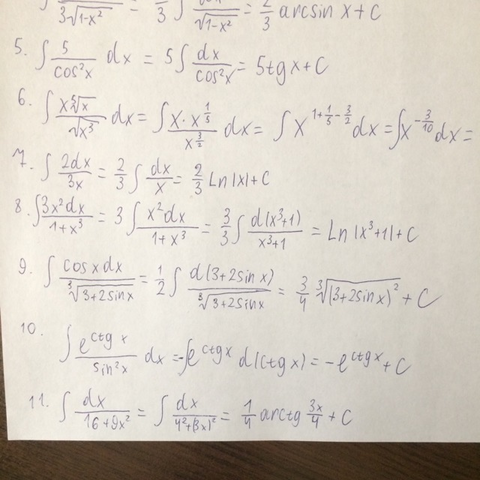 ∫ .../(3√(1-x²)) = .../3 ∫ .../√(1-x²) = 2/3 arcsin x + C
5. ∫ 5/cos²x dx = 5∫ dx/cos²x = 5tgx + C
6. ∫ x⁵√x/√x³ dx = ∫ x·x^(1/5)/x^(3/2) dx = ∫ x^(1+1/5-3/2) dx = ∫x^(-3/10) dx =
7. ∫ 2dx/3x = 2/3 ∫ dx/x = 2/3 Ln|x| + C
8. ∫ 3x²dx/(1+x³) = 3∫ x²dx/(1+x³) = 3/3 ∫ d(x³+1)/(x³+1) = Ln|x³+1| + C
9. ∫ cosxdx/³√(3+2sinx) = 1/2 ∫ d(3+2sinx)/³√(3+2sinx) = 3/4 ³√(3+2sinx)² + C
10.
∫ e^(ctgx)/sin²x dx = -∫e^(ctgx) d(ctgx) = -e^(ctgx) + C
11. ∫ dx/(16+9x²) = ∫ dx/(4²+(3x)²) = 1/4 arctg 3x/4 + C